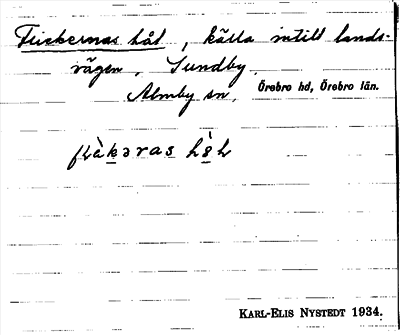 Flickernas hål, källa intill lands-
vägen, Sundby,
Almby sn, Örebro hd, Örebro län.
KARL-ELIS NYSTEDT 1934.